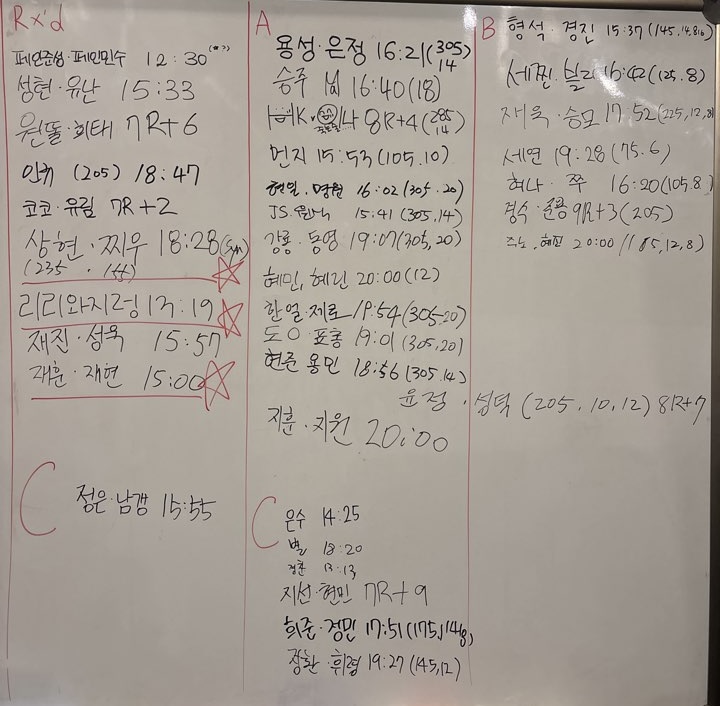 Rx'd
페인준성·페인민수 12:30
성현·유난 15:33
원똘·희태 7R+6
인휘 (205) 18:47
코코·유림 7R+2
상현·찌우 18:28
(235 ·
리리와지렁 13:19
재진·성욱 15:57
재훈·재현 15:00
C
정은·남갱 15:55
A
용성·은정 16:21(305) 14
승주 16:40(18)
8R+4(285) 14
먼지 15:53(105.10)
현일·명훤 16:02(305.20)
JS 15:41(305,14)
강룡·동영 19:07(305,20)
혜민, 혜린 20:00(12)
한얼·제로 19:54(305-20)
도O·표총 19:01(305,20)
현준 용민 18:56(305.14)
윤정·성덕(205.10.12) 8R+7
지훈·지원 20:00
C
은수 14:25
별 18:20
13:13
지선·현민 7R+9
희준·경민 17:51(175,14,8)
장환·휘령 19:27(145,12)
B
형석·경진 15:37(145.14.8)
세찐·빌리 16:42(125.8)
재욱·승모 17:52(225,12,8)
세연 19:28(75.6)
혀나·쭈 16:20(105.8)
경수·준용 9R+3(205)
20:00